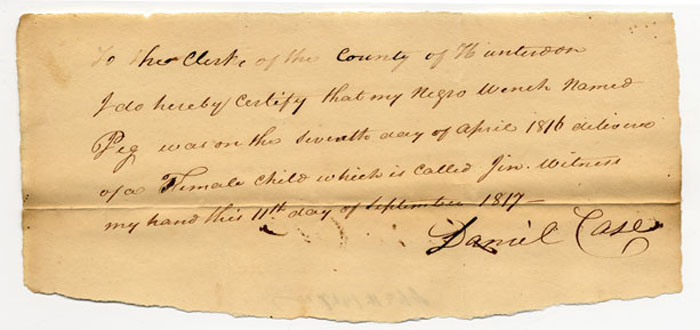 To the Clerk of the County of Hunterdon
I do hereby Certify that my Negro Wench Named
Peg was on the Seventh day of April 1816 delivered
of a Female Child which is called Jin. Witness
my hand this 11th day of September 1817—
Daniel Case